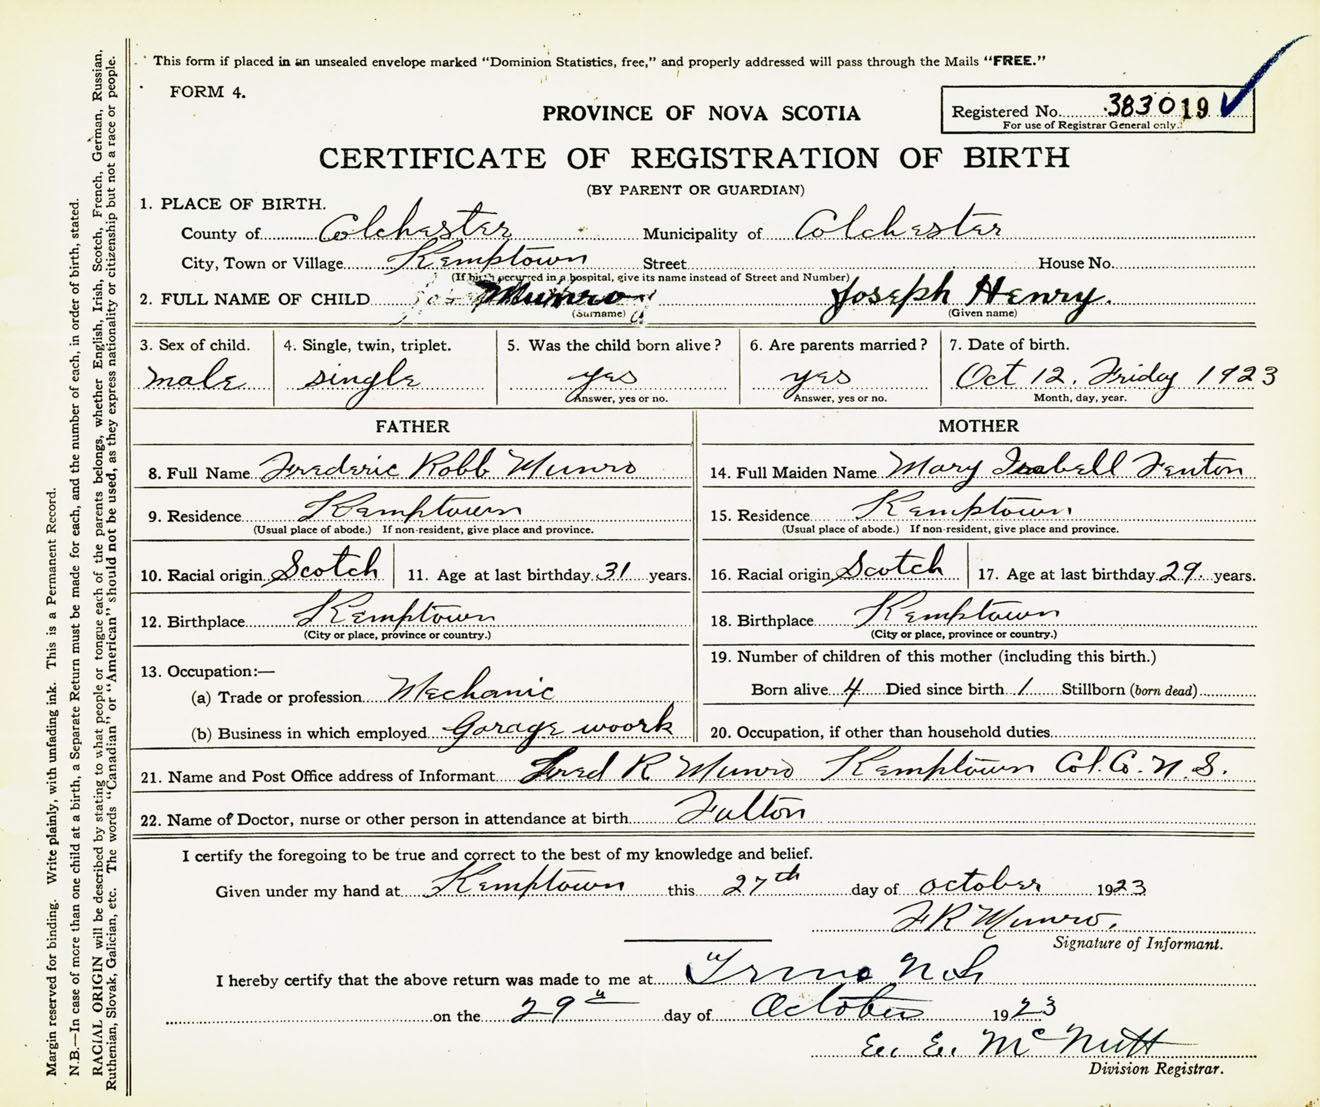 This form if placed in an unsealed envelope marked "Dominion Statistics, free," and properly addressed will pass through the Mails "FREE."
FORM 4.
PROVINCE OF NOVA SCOTIA
Registered No. 383019
For use of Registrar General only.
CERTIFICATE OF REGISTRATION OF BIRTH
(BY PARENT OR GUARDIAN)
1. PLACE OF BIRTH.
County of Colchester Municipality of Colchester
City, Town or Village Kemptown Street House No.
(If birth occurred in a hospital, give its name instead of Street and Number)
2. FULL NAME OF CHILD Munro Joseph Henry.
(Surname) (Given name)
3. Sex of child. 4. Single, twin, triplet. 5. Was the child born alive? 6. Are parents married? 7. Date of birth.
male single yes yes Oct 12. Friday 1923
Answer, yes or no. Answer, yes or no. Month, day, year.
FATHER MOTHER
8. Full Name Frederic Robb Munro 14. Full Maiden Name Mary Isabell Fenton
9. Residence Kemptown 15. Residence Kemptown
(Usual place of abode.) If non-resident, give place and province. (Usual place of abode.) If non-resident, give place and province.
10. Racial origin Scotch 11. Age at last birthday 31 years. 16. Racial origin Scotch 17. Age at last birthday 29 years.
12. Birthplace Kemptown 18. Birthplace Kemptown
(City or place, province or country.) (City or place, province or country.)
13. Occupation:— 19. Number of children of this mother (including this birth.)
(a) Trade or profession Mechanic Born alive 4 Died since birth 1 Stillborn (born dead)
(b) Business in which employed Garage woork 20. Occupation, if other than household duties
21. Name and Post Office address of Informant Fred R Munro Kemptown Col. Co. N. S.
22. Name of Doctor, nurse or other person in attendance at birth Fulton
I certify the foregoing to be true and correct to the best of my knowledge and belief.
Given under my hand at Kemptown this 27th day of october 1923
F R Munro.
Signature of Informant.
I hereby certify that the above return was made to me at N.S.
on the 29th day of October 1923
E. E. McNutt
Division Registrar.
Margin reserved for binding. Write plainly, with unfading ink. This is a Permanent Record.
N.B.—In case of more than one child at a birth, a Separate Return must be made for each, and the number of each, in order of birth, stated.
RACIAL ORIGIN will be described by stating to what people or tongue each of the parents belongs, whether English, Irish, Scotch, French, German, Russian,
Ruthenian, Slovak, Galician, etc. The words "Canadian" or "American" should not be used, as they express nationality or citizenship but not a race or people.